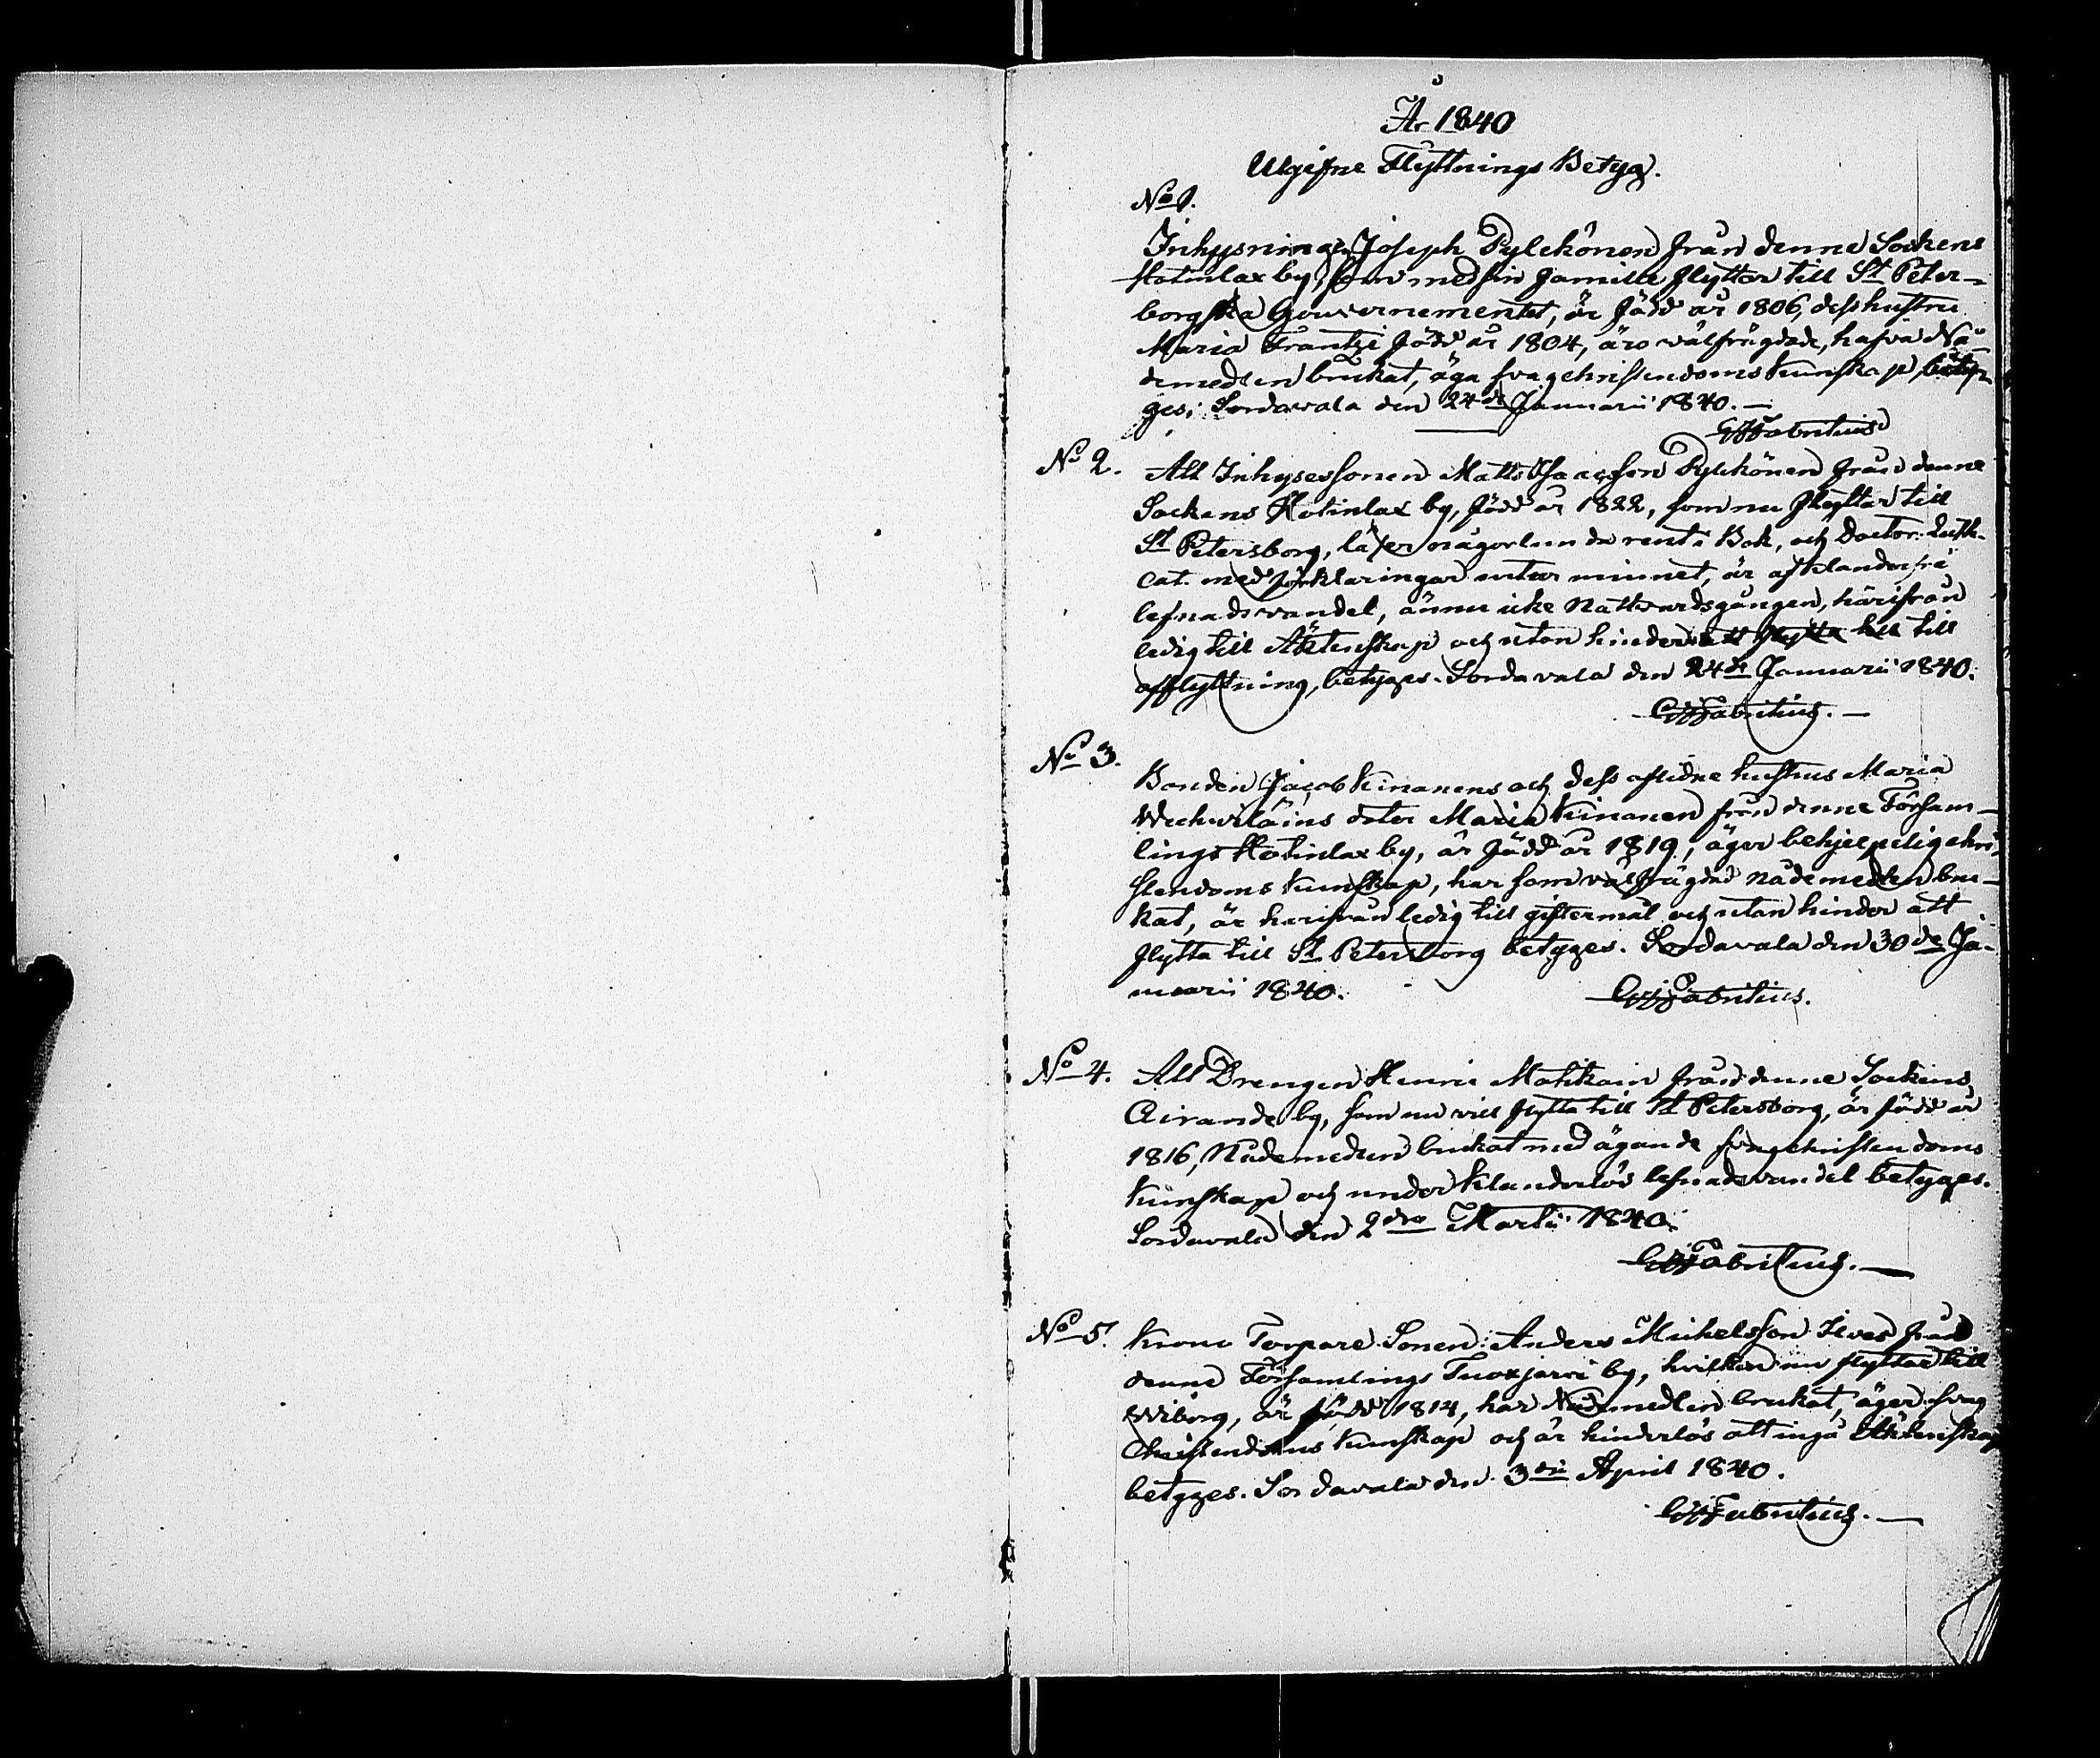 År 1840
Utgifne Flyttnings Betyg.
No 1.
Inhysningen Joseph Pylckönen från denne Sockens
Hotinlax by, som med sin familie flyttar till St Peter-
borgska Gouvernementet, är född år 1806, dess hustru
Maria Frantzi född år 1804, äro välfrägdade, hafva Nå-
demedlen brukat, äga svag christendoms kunskap, bety-
ges; Sordavala den 24de Januarii 1840.—
Fabritius
No 2. Att Inhysessonen Matts Isaacsson Pylckönen från denne
Sockens Hotinlax by, född år 1822, som nu flyttar till
St Petersborg, läser någorlunda rent i Bok, och Doctor Luth.
Cat. med förklaringar utur minnet, är af klanderfri
lefnadsvandel, ännu icke Nattvardsgången, härifrån
ledig till Äktenskap och utan hinder att flytta till till
afflyttning, betyges. Sordavala den 24de Januarii 1840.
Fabritius.—
No 3.
Bonden Jacob Kinanens och dess aflidne hustrus Maria
Wechviläins doter Maria Kinanen från denne Försam-
lings Hotinlax by, är född år 1819, äger behjelpelig chri-
stendoms kunskap, har som välfrägdad nådemedlen bru-
kat, är härifrån ledig till giftermål och utan hinder att
flytta till St Petersborg betyges. Sordavala den 30de Ja-
nuarii 1840. Fabritius.
No 4. Att Drengen Henric Matikain från denne Sockens
Airande by, som nu vill flytta till St Petersborg, är född år
1816, Nådemedlen brukat med ägande svag christendoms
kunskap och under klanderlös lefnadsvandel betyges.
Sordavala den 2dra Martii 1840.
Fabritius.—
No 5. Krono Torpare Sonen Anders Michelsson Ilves från
denne Församlings Tuoxjarvi by, hvilken nu flyttar till
Wiborg, är född 1814, har Nådemedlen brukat, äger svag
Christendoms kunskap och är hinderlös att ingå Äktenskap
betyges. Sordavala den 3die April 1840.
Fabritius.—